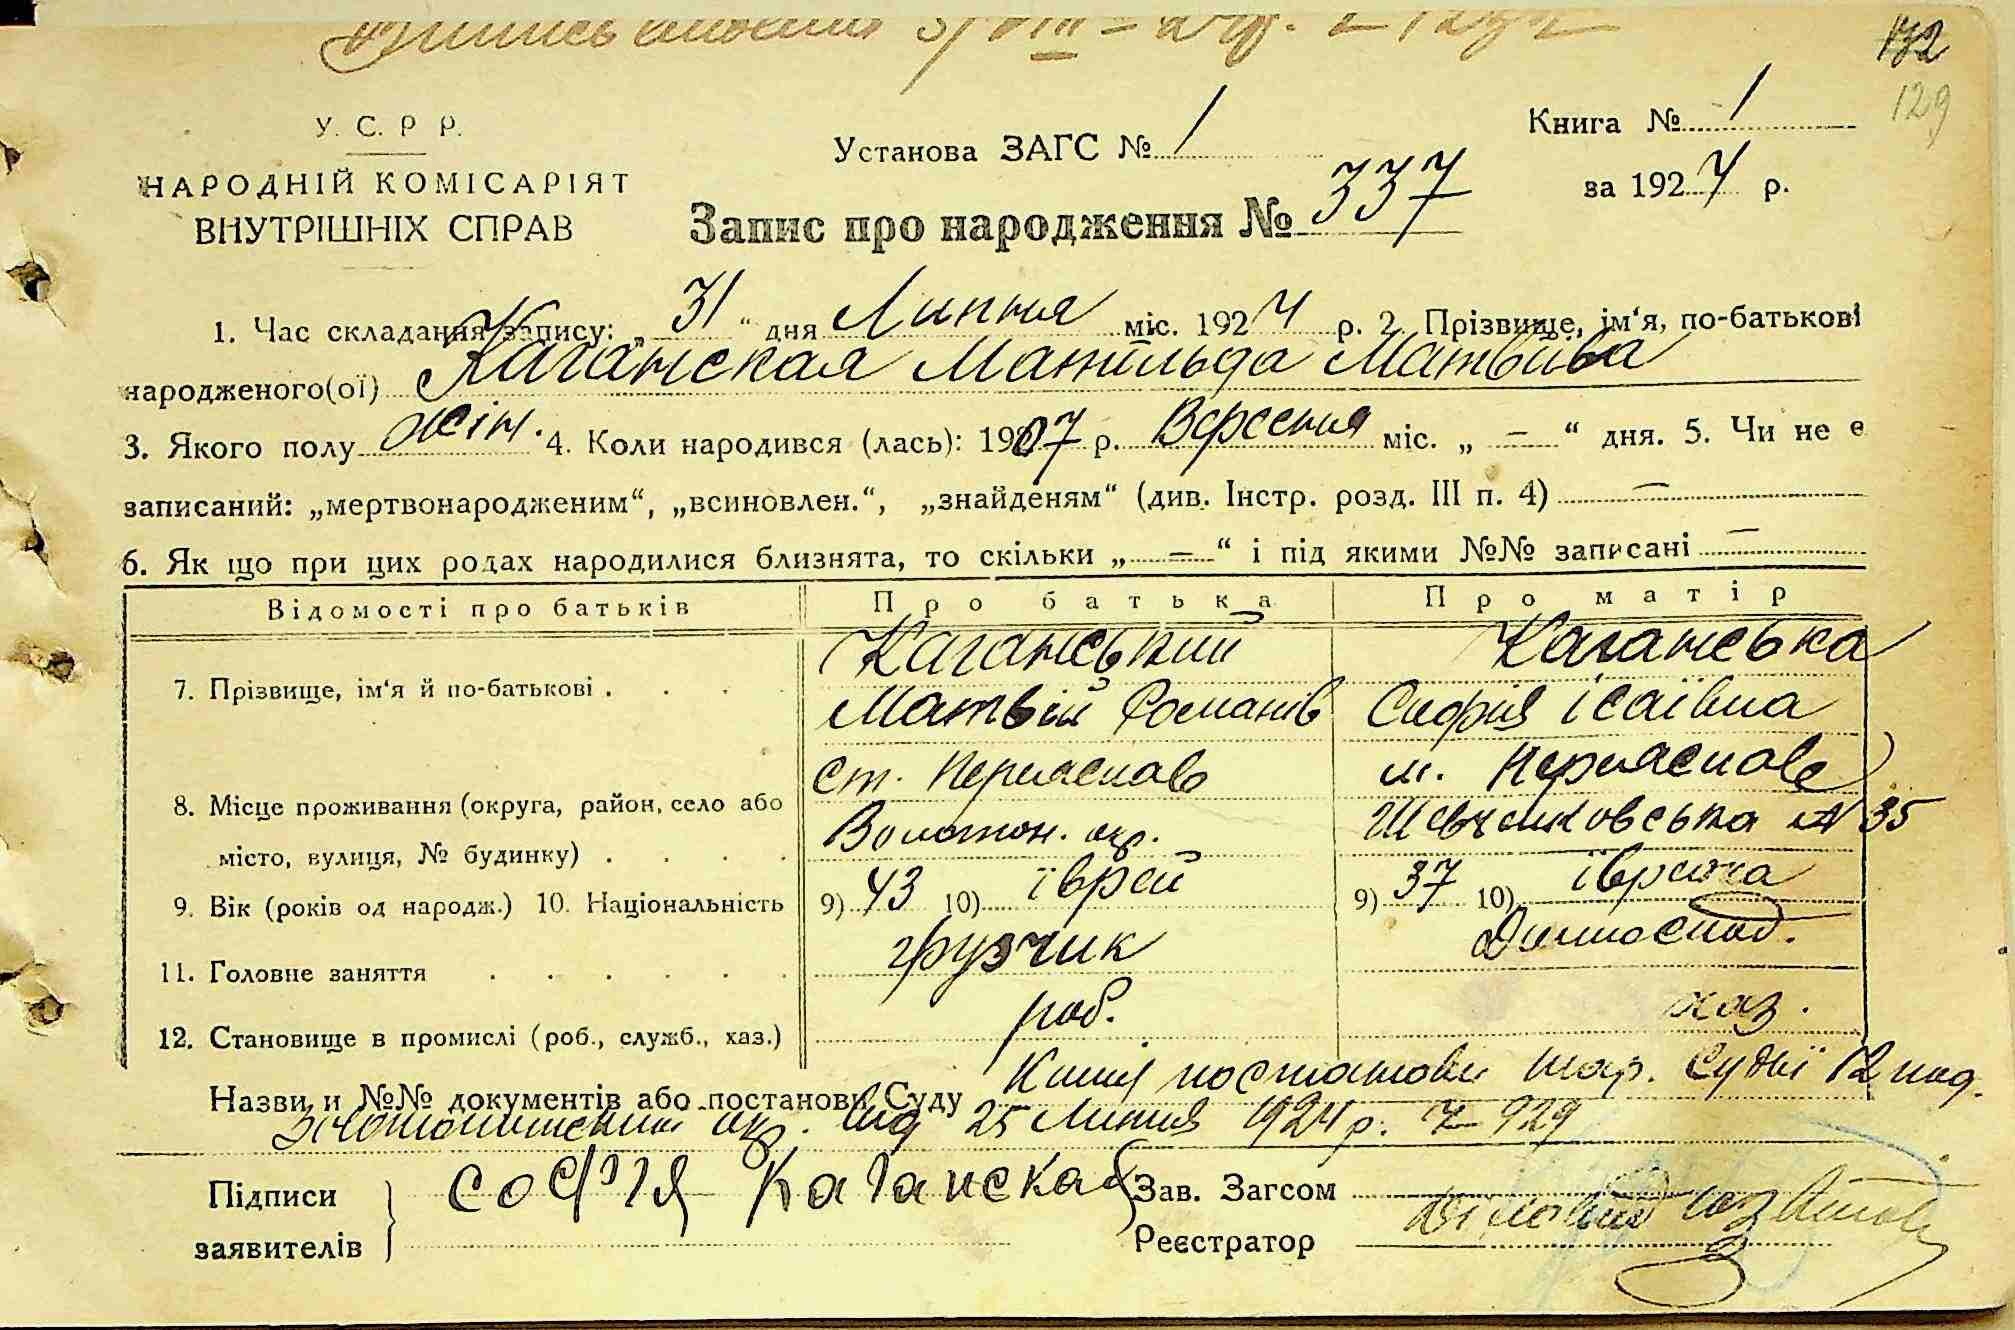 132
129
У. С. Р. Р.
НАРОДНІЙ КОМІСАРІЯТ
ВНУТРІШНІХ СПРАВ
Установа ЗАГС № 1
Книга № 1
за 1924 р.
Запис про народження № 337
1. Час складання запису: „ 31 “ дня Липня міс. 1924 р. 2. Прізвище, ім‘я, по-батькові
народженого(ої) Каганская Матільда Матвіïва
3. Якого полу жін. 4. Коли народився (лась): 1907 р. Вересня міс. „ – “ дня. 5. Чи не є
записаний: „мертвонародженим“, „всиновлен.“, „знайденям“ (див. Інстр. розд. III п. 4) —
6. Як що при цих родах народилися близнята, то скільки „ – “ і під якими №№ записані —
Відомості про батьків Про батька Про матір
7. Прізвище, ім‘я й по-батькові . . . . Каганський Каганська
Матвій Романів Софія Ісаївна
8. Місце проживання (округа, район, село або ст. Переяслав м. Переяслав
місто, вулиця, № будинку) . . . . окр. Шевченковська № 35
9. Вік (років од народж.) 10. Національність 9) 43 10) їврей 9) 37 10) їврейка
11. Головне заняття . . . . . . грузчик Домоспод.
12. Становище в промислі (роб., служб., хаз.) роб. хаз.
Назви и №№ документів або постанови Суду Копия постанови Нар. Судьї 12
окр. від 25 Липня 1924 р. 929
Підписи
заявителів
софія Каганская
Зав. Загсом
Реєстратор